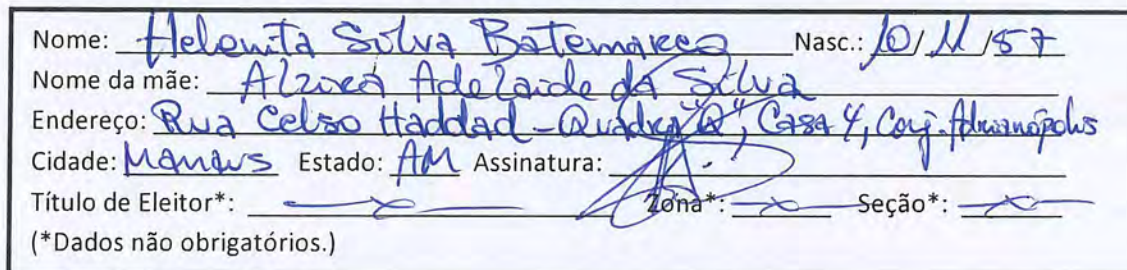 Nome: Helonita Silva Batemarco Nasc.: 10/11/57
Nome da mãe: Alzira Adelaide da Silva
Endereço: Rua Celso Haddad - Quadra "Q", Casa 4, Conj. Adrianópolis
Cidade: Manaus Estado: AM Assinatura:
Título de Eleitor*: Zona*: Seção*:
(*Dados não obrigatórios.)